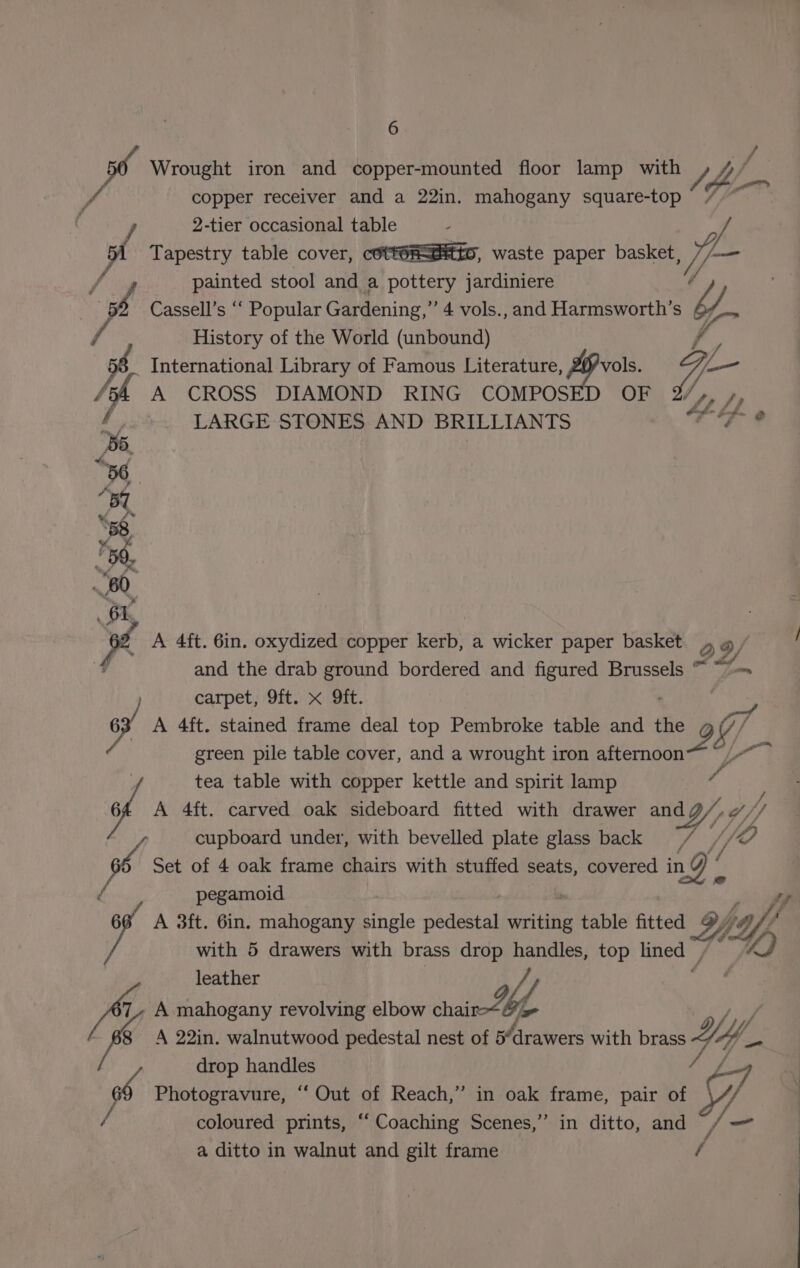 6
50 Wrought iron and copper-mounted floor lamp with
copper receiver and a 22in. mahogany square-top
2-tier occasional table
51 Tapestry table cover, cotton ditto, waste paper basket,
painted stool and a pottery jardiniere
52 Cassell's “ Popular Gardening,” 4 vols., and Harmsworth's
History of the World (unbound)
53 International Library of Famous Literature, vols.
54 A CROSS DIAMOND RING COMPOSED OF
LARGE STONES AND BRILLIANTS
55
56
57
58
59
60
61
62 A 4ft. 6in. oxydized copper kerb, a wicker paper basket
and the drab ground bordered and figured Brussels
carpet, 9ft. × 9ft.
63 A 4ft. stained frame deal top Pembroke table and the
green pile table cover, and a wrought iron afternoon
tea table with copper kettle and spirit lamp
64 A 4ft. carved oak sideboard fitted with drawer and
cupboard under, with bevelled plate glass back
65 Set of 4 oak frame chairs with stuffed seats, covered in
pegamoid
66 A 3ft. 6in. mahogany single pedestal writing table fitted
with 5 drawers with brass drop handles, top lined
leather
67 A mahogany revolving elbow chair
68 A 22in. walnutwood pedestal nest of 5 drawers with brass
drop handles
69 Photogravure, “ Out of Reach,” in oak frame, pair of
coloured prints, “ Coaching Scenes,” in ditto, and
a ditto in walnut and gilt frame